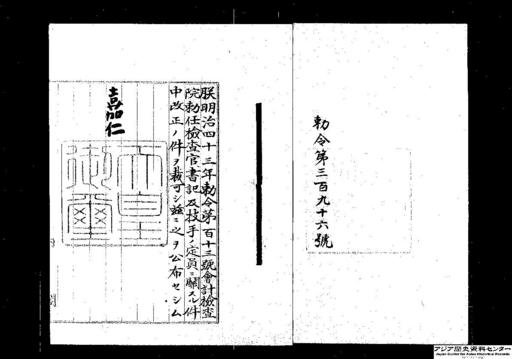 勅令第三百九十六號
朕明治四十三年勅令第百十三號會計檢査
院勅任檢査官書記及技手ノ定員ニ關スル件
中改正ノ件ヲ裁可シ茲ニ之ヲ公布セシム
嘉仁
天皇
御璽
アジア歴史資料センター
Japan Center for Asian Historical Records